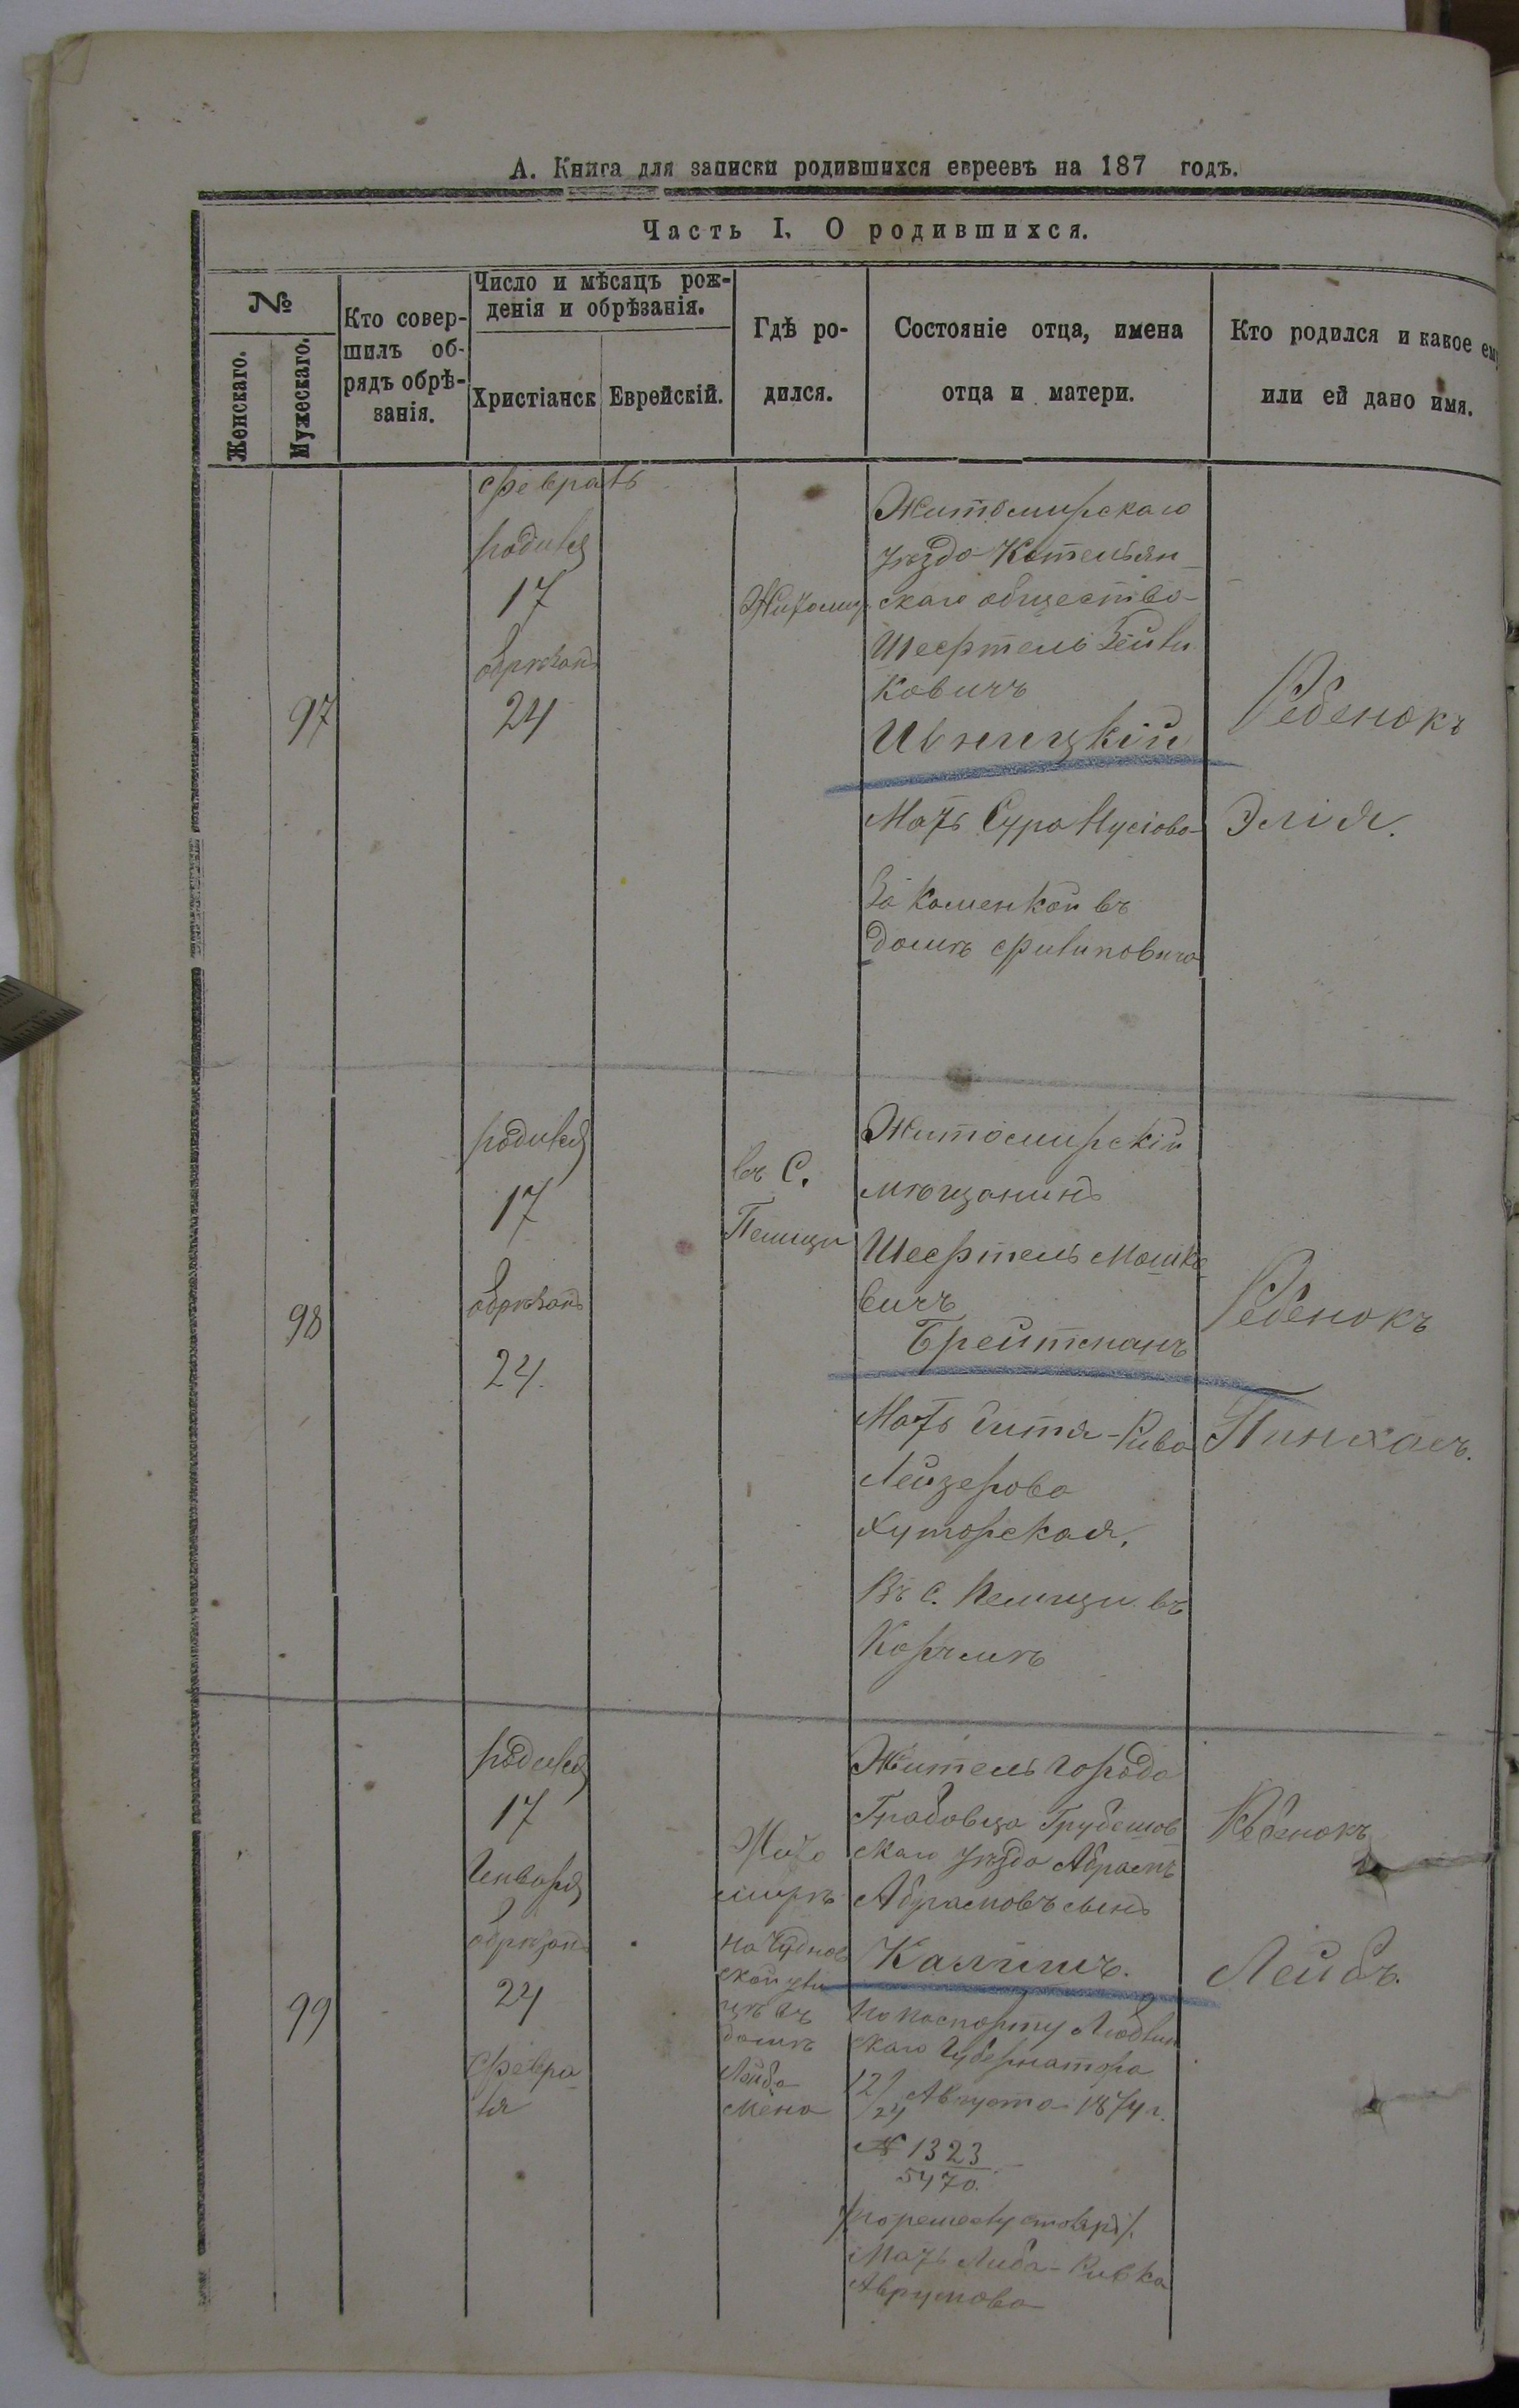 А. Книга для записки родившихся евреевъ на 187 годъ.
Часть I. О родившихся.
№
Женскаго.
Мужескаго.
Кто совер-
шилъ об-
рядъ обрѣ-
занія.
Число и мѣсяцъ рож-
денія и обрѣзанія.
Христіанск
Еврейскій.
Гдѣ ро-
дился.
Состояніе отца, имена
отца и матери.
Кто родился и какое ему
или ей дано имя.
97
Февраль
родился
17
обрѣзанъ
24
Житомир
Житомирскаго
уѣзда Котельян-
скаго общества
Шефтель Зейли
ковичъ
Ивницкій
Мать Сура Нусіова
За Каменкой въ
домѣ Филиповича
Ребенокъ
Элія.
98
родился
17
обрѣзанъ
24.
въ С.
Житомирскій
мѣщанинъ
Шефтель Мошко-
вичъ
Брейтманъ
Мать Гитля-Рива
Лейзерова
Хуторская.
Въ с. въ
Корчмѣ
Ребенокъ
Пинхасъ.
99
родился
17
Генваря
обрѣзанъ
24
Февра-
ля
Жито
мирѣ
на Чуднов
ской ули
цѣ въ
домѣ
Лейба
Житель города
Грабовца Грубешов
скаго уѣзда Абрамъ
Абрамовъ сынъ
Калишъ.
по паспорту Люблин
скаго Губернатора
12/24 Августа 1874 г.
№ 1323
5470.
Мать Либа-Ривка
Аврумова
Ребенокъ
Лейбъ.